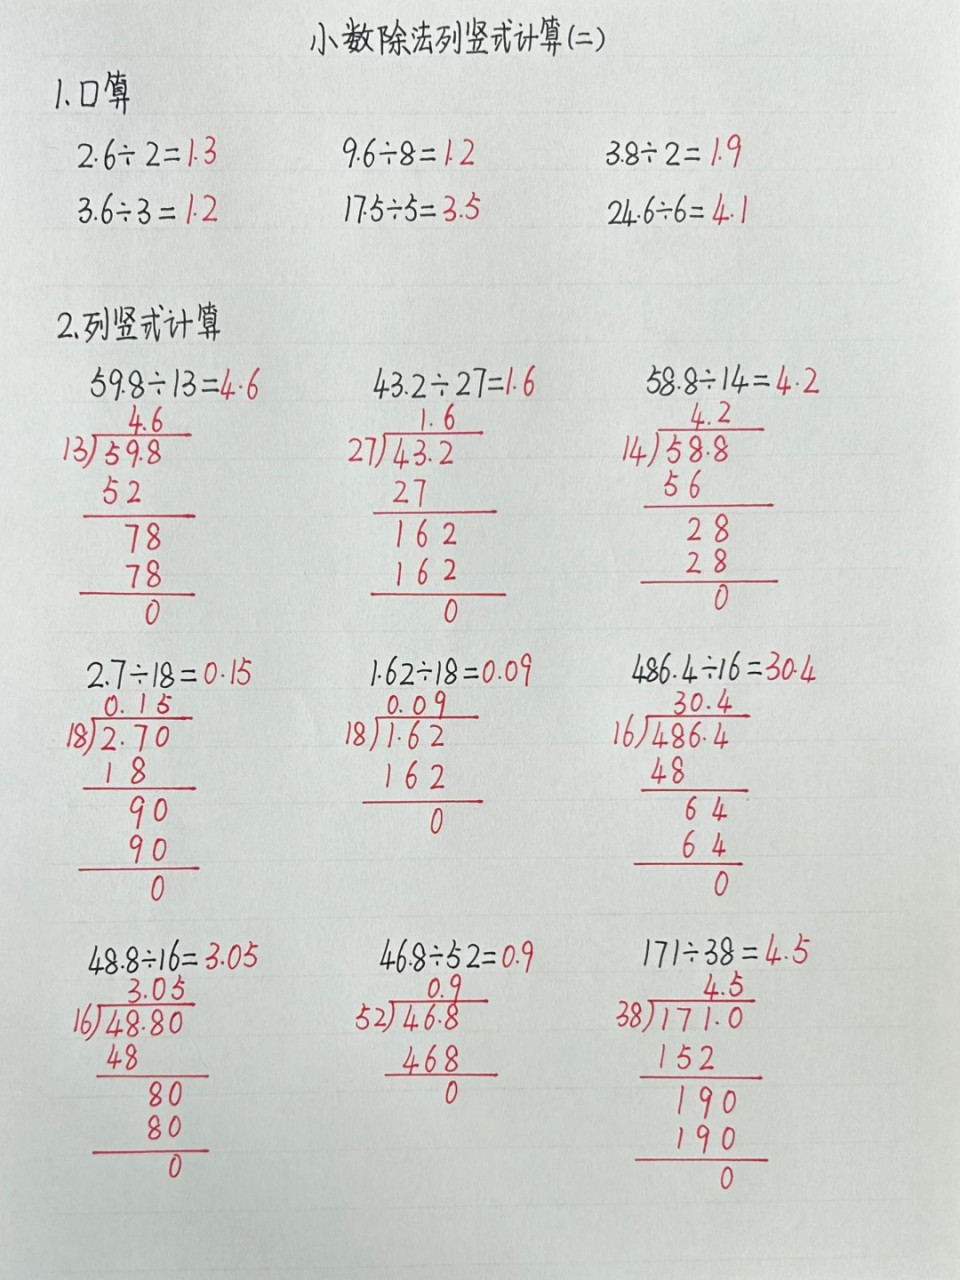 小数除法列竖式计算(二)
1.口算
2.6÷2=1.3 9.6÷8=1.2 3.8÷2=1.9
3.6÷3=1.2 17.5÷5=3.5 24.6÷6=4.1
2.列竖式计算
59.8÷13=4.6 43.2÷27=1.6 58.8÷14=4.2
4.6 1.6 4.2
13)59.8 27)43.2 14)58.8
52 27 56
78 162 28
78 162 28
0 0 0
2.7÷18=0.15 1.62÷18=0.09 486.4÷16=30.4
0.15 0.09 30.4
18)2.70 18)1.62 16)486.4
18 162 48
90 0 64
90 64
0 0
48.8÷16=3.05 46.8÷52=0.9 171÷38=4.5
3.05 0.9 4.5
16)48.80 52)46.8 38)171.0
48 468 152
80 0 190
80 190
0 0